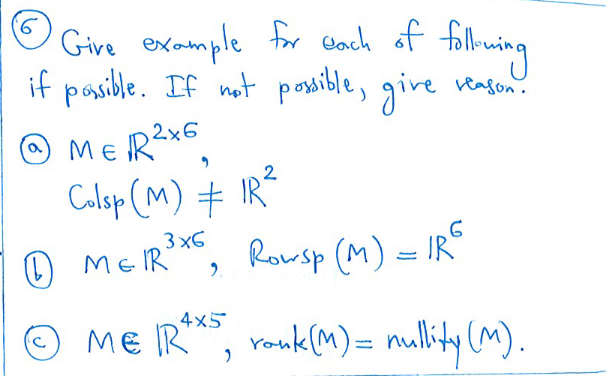 ⑥ Give example for each of following
if possible. If not possible, give reason.
ⓐ M ∈ ℝ^{2×6},
Colsp(M) ≠ ℝ^2
ⓑ M ∈ ℝ^{3×6}, Rowsp(M) = ℝ^6
ⓒ M ∈ ℝ^{4×5}, rank(M) = nullity(M).